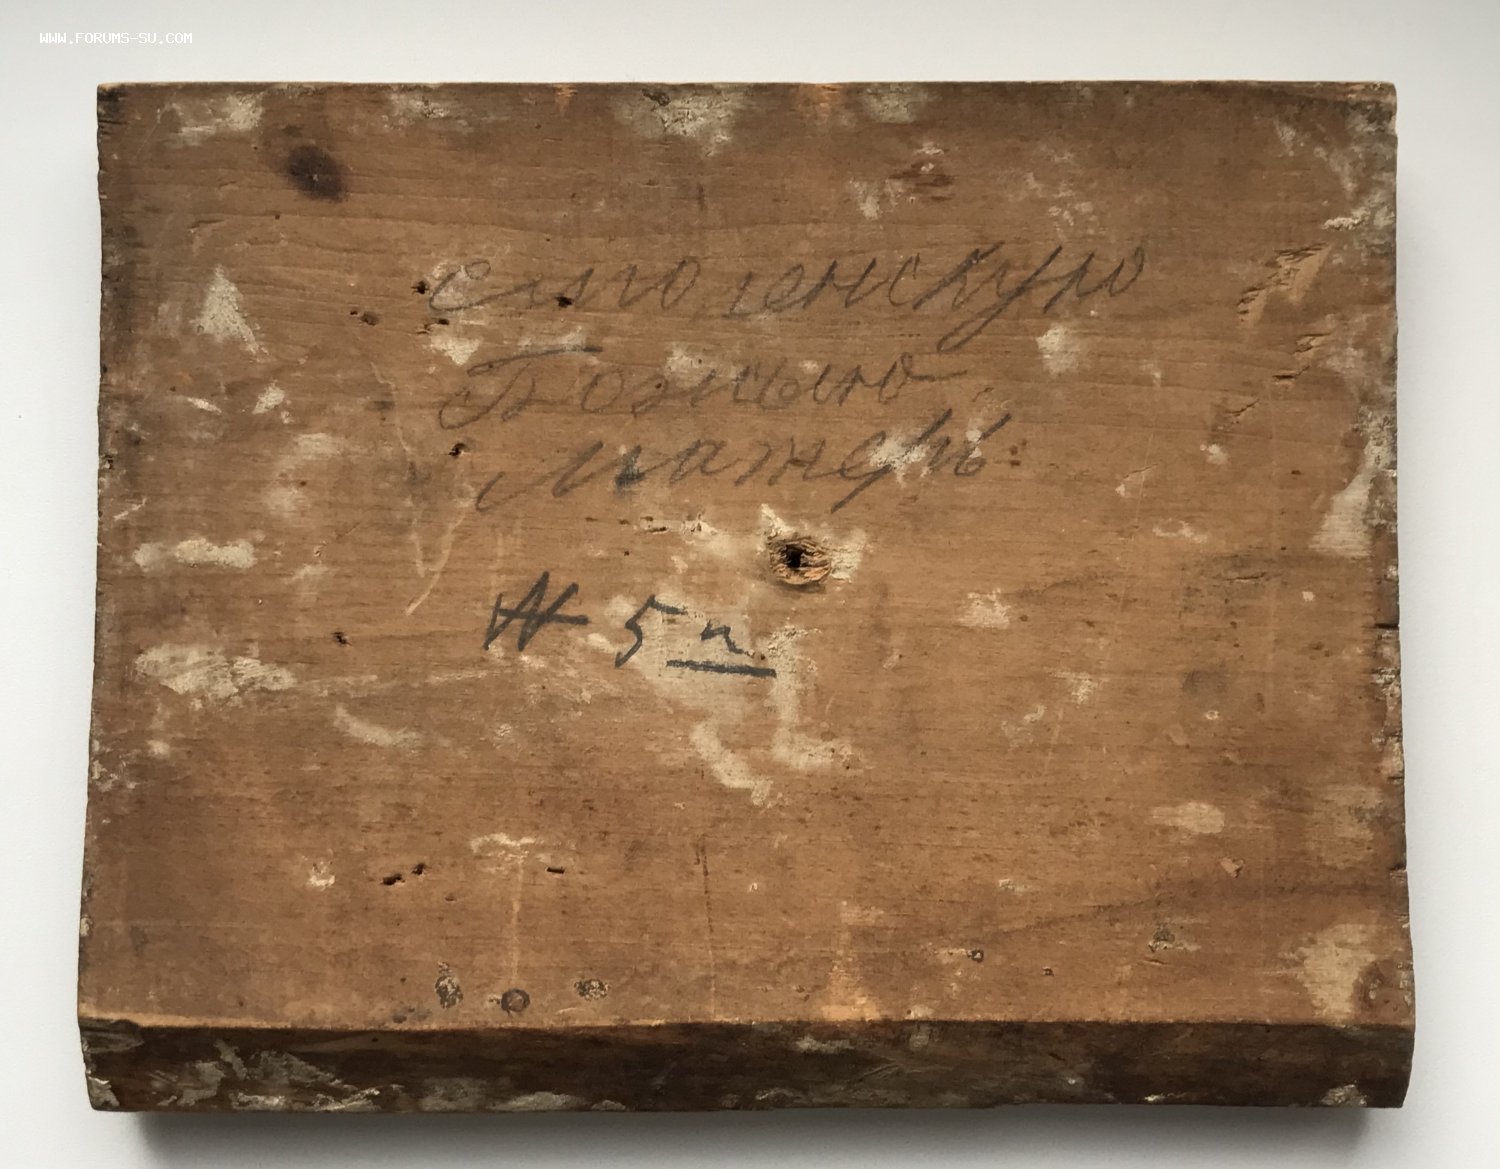 WWW.FORUMS-SU.COM
смоленскую
Божью
матерь
№ 5 л